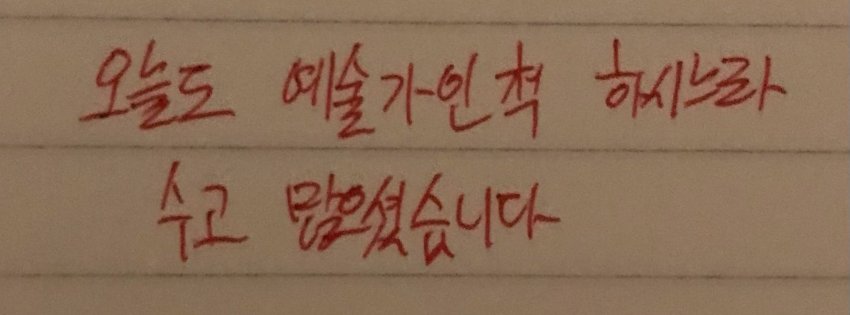 오늘도 예술가인척 하시느라
수고 많으셨습니다